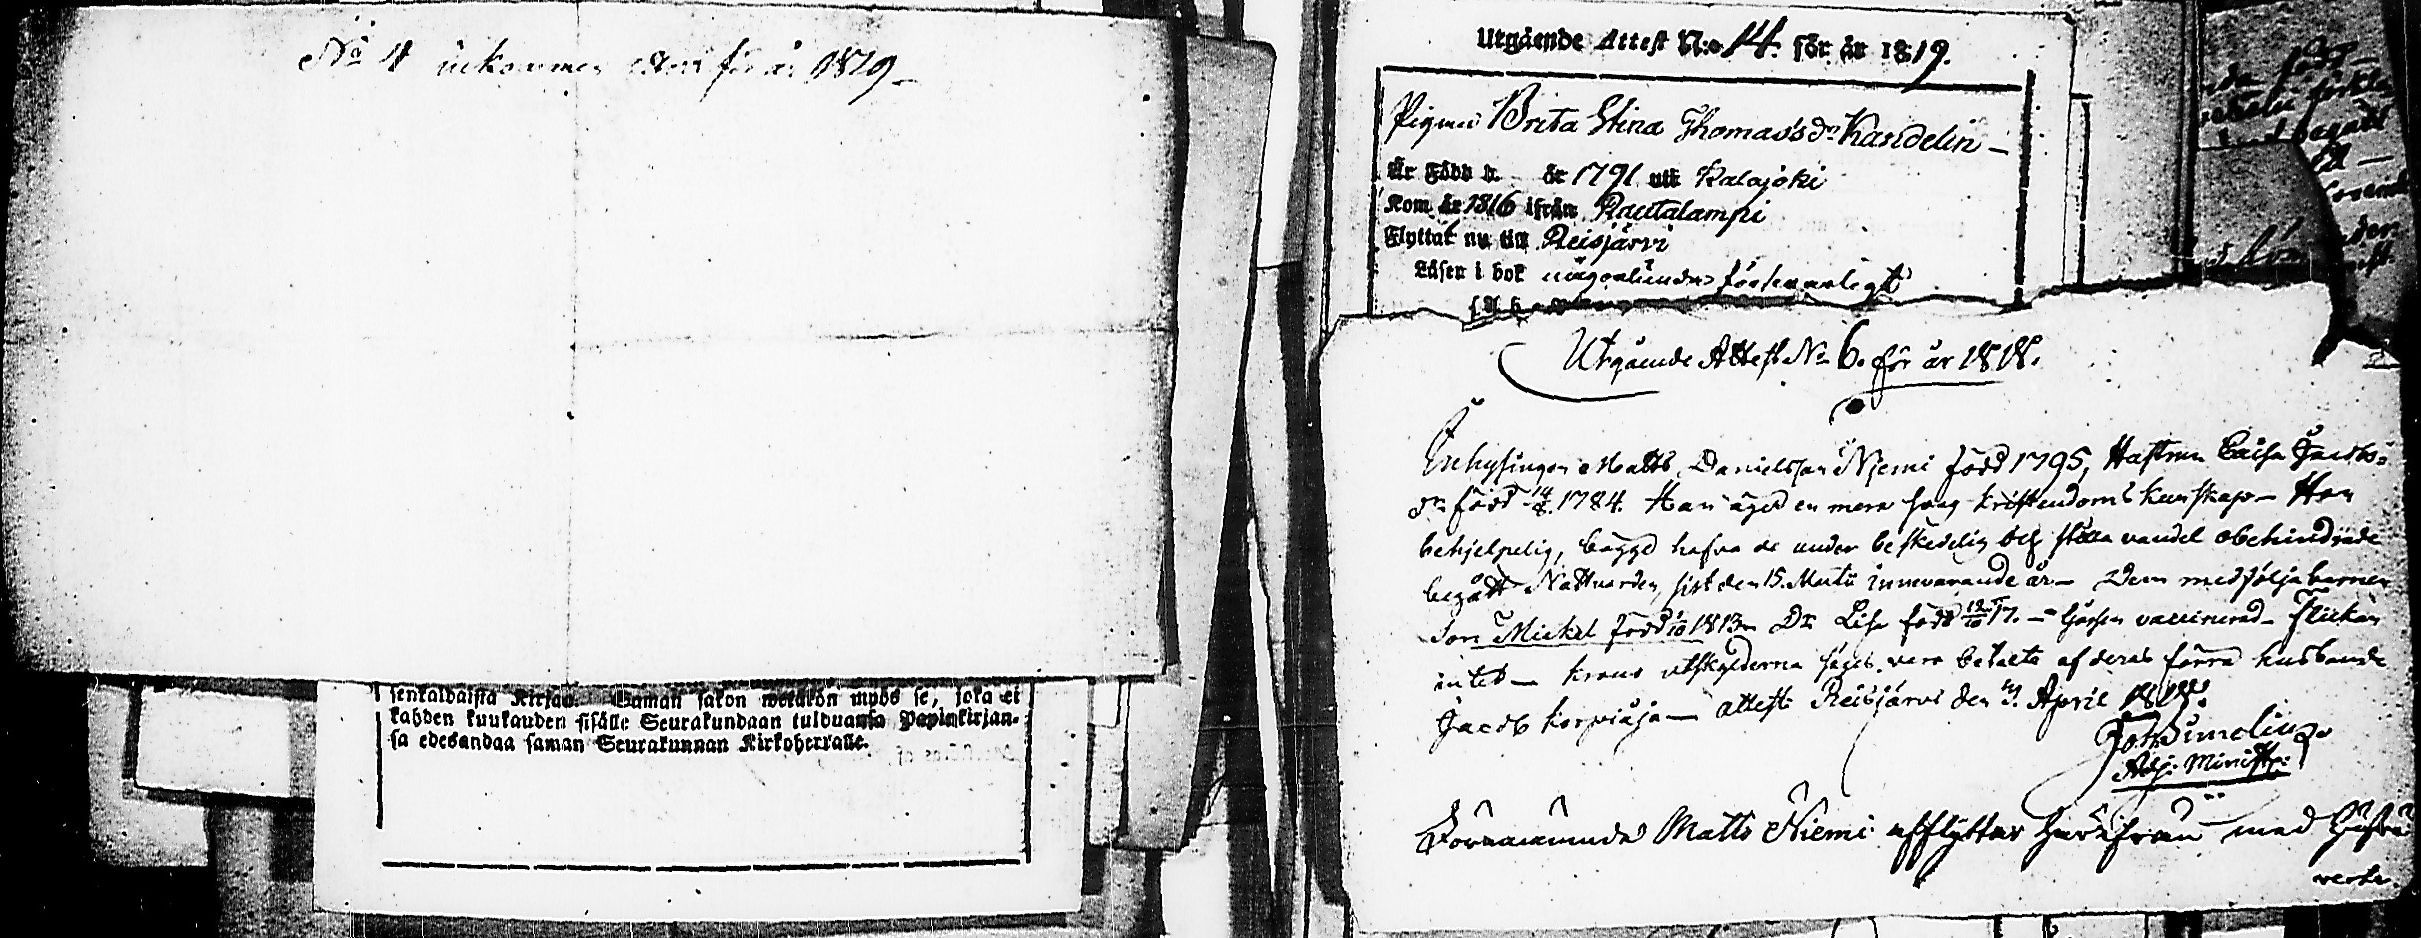 No 4 inkommen attest för år 1819
senkaldaista Kirjaa. Saman sakon wetäkön myös se, joka ei
kahden kuukauden sisälle Seurakundaan tulduansa Papinkirjan-
sa edesandaa saman Seurakunnan Kirkoherralle.
Utgående Attest N:o 14. för år 1819.
Pigan Brita Stina Thomasdr Kandelin
Är Född d. år 1791 uti Kalajoki
Kom år 1816 ifrån Rautalampi
Flyttar nu till Reisjärvi
Läser i bok någorlunda försvarligt
Utgående Attest No 6. för år 1818.
Inhysingen Matts Danielsson Niemi född 1795, Hustrun Caisa Jacobs-
dr född 14/8. 1784. Han äger en mera svag kristendoms kunskap - Hon
behjelpelig, bägge hafva de under beskedelig och stilla vandel obehindrade
begått Nattvarden, sist den 15. Martii innevarande år - Dem medfölja barnen
Son Mickel född 1/10 1813 Dr Lisa född 19/10 17. - Gossen vaccinerad - Flickan
intet - Krono utskylderna säges vara betalte af deras förra husbonde
Jacob Korpioja - attest. Reisjärvi den 4. April 1818.
Joh. Simelius
Adj. Minist:
Förenämnde Matts Niemi afflyttar härifrån med Hustru
verte.